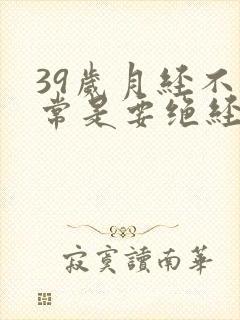 39歲月経不
常是要绝経
寂寞讀南華